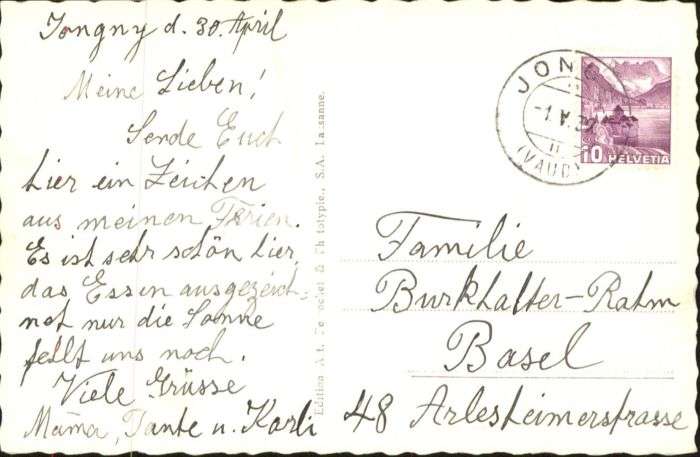 Jongny d. 30. April
Meine Lieben!
Sende Euch
hier ein Zeichen
aus meinen Ferien.
Es ist sehr schön hier,
das Essen ausgezeich-
net nur die Sonne
fehlt uns noch.
Viele Grüsse
Mama, Tante u. Karli
Edition Art. & Phototypie., S.A. Lausanne.
JON
-1. V.
(VAUD)
10 HELVETIA
Familie
Burkhalter-Rahm
Basel
48 Arlesheimerstrasse